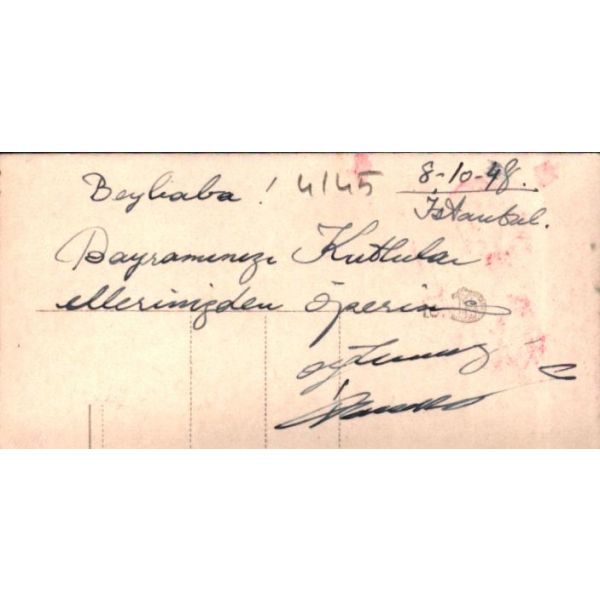 Beybaba! 4145 8-10-48.
İstanbul.
Bayramınızı Kutlular
ellerinizden öperim
oğlunuz